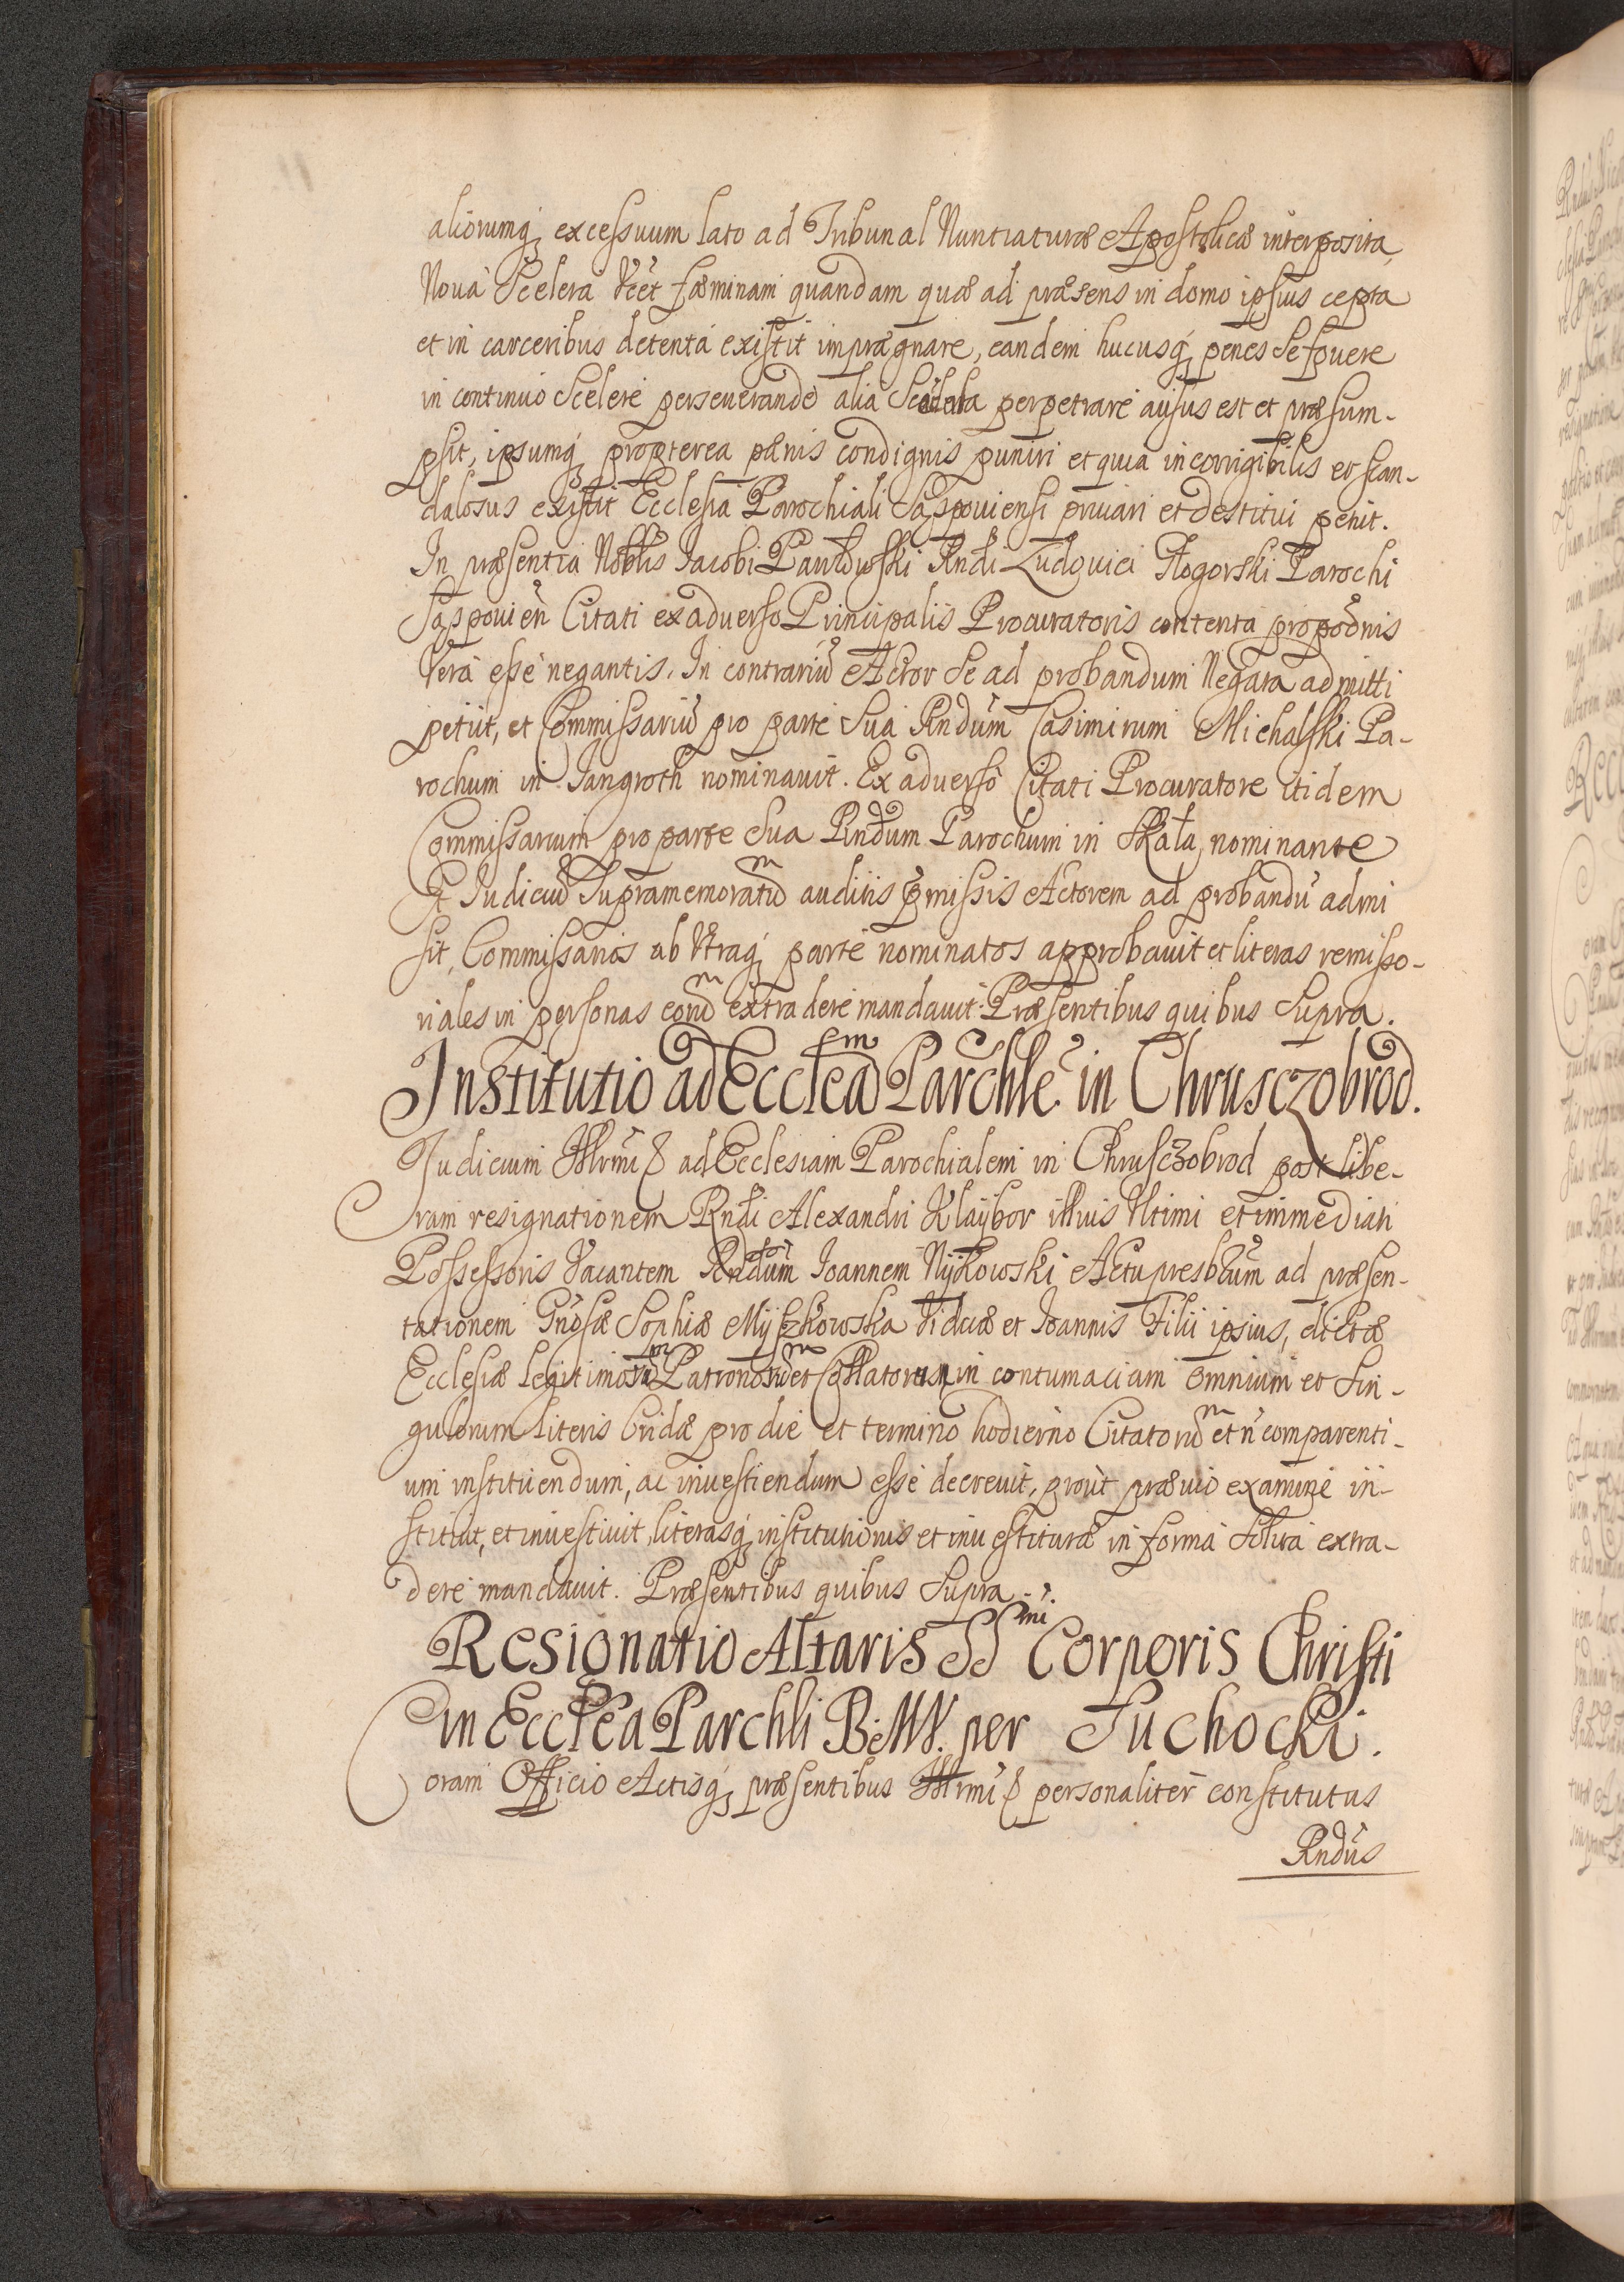 aliorumq, excessuum lato ad Tribunal Nuntiaturæ Apostolicæ interposita,
Noua Scelera Vcet fæminam quandam quæ ad præsens in domo ipsius cepta
et in carceribus detenta existit imprægnare, eandem hucusq, penes se fouere
in continuo Scelere perseuerando alia Scelera perpetrare ausus est et præsum-
psit, ipsumq, propterea pænis condignis puniri et quia incorrigibilis et scan-
dalosus existit Ecclesia Parochiali Sasspouiensi priuari et destitui petiit.
In præsentia Noblis Iacobi Pawłowski Rndi Ludouici Płogorski Parochi
Sasspouien Citati ex aduerso Principalis Procuratoris contenta propoõnis
Vera esse negantis. In contrariũ Actor se ad probandum Negata admitti
petiit, et Commissariũ pro parte Sua Rndum Casimirum Michalski Pa-
rochum in Jangroth nominauit. Ex aduerso Citati Procuratore itidem
Commissarium pro parte Sua Rndum Parochum in Skała nominante
Et Iudiciũ Supramemoratũ auditis pmissis Actorem ad probandũ admi
sit, Commissarios ab Vtraq, parte nominatos approbauit et literas remisso-
riales in personas eorũm extradere mandauit. Præsentibus quibus Supra.
Institutio ad Eccleãm Parchle in Chrusczobrod.
Iudicium Illrmi & ad Ecclesiam Parochialem in Chrusczobrod post libe-
ram resignationem Rndi Alexandri Klaybor illius Vltimi et immediati
Possessoris Vacantem Rndum Ioannem Nykowski Actu presbrum ad præsen-
tationem Gnosæ Sophiæ Myszkowska Viduæ et Ioannis Filii ipsius, dictæ
Ecclesiæ Legitimorũm Patronorũm et Collatorum in contumaciam omnium et sin-
gulorum literis Cridæ pro die et termino hodierno Citatorũm et n comparenti-
um instituendum, ac inuestiendum esse decreuit, prout præuio examine in-
stituit, et inuestiuit, literasq, institutionis et inuestituræ in forma solita extra-
dere mandauit. Præsentibus quibus Supra.
Resignatio Altaris SSmi Corporis Christi
in Ecclea Parchli B:MV. per Suchocki.
Coram Officio Actisq, præsentibus Illrmi & personaliter constitutus
Rndus